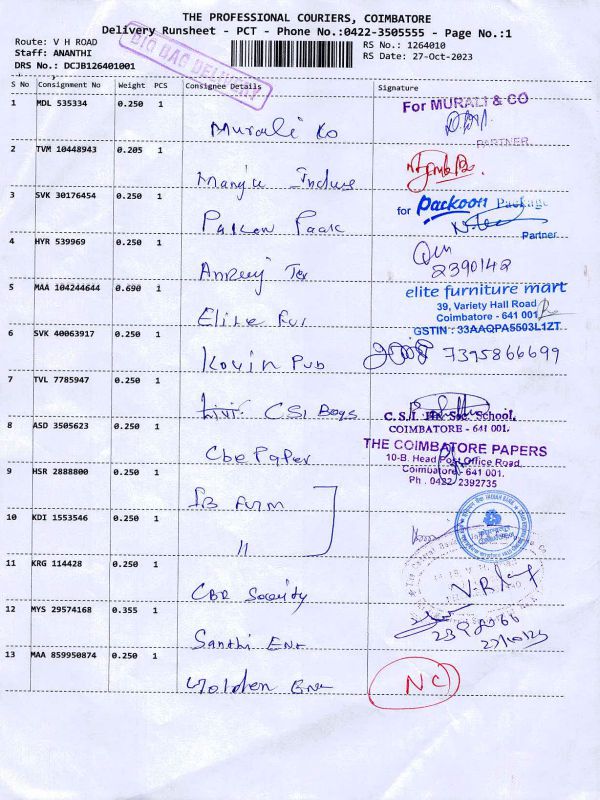 THE PROFESSIONAL COURIERS, COIMBATORE
Delivery Runsheet - PCT - Phone No.:0422-3505555 - Page No.:1
Route: V H ROAD
RS No.: 1264010
Staff: ANANTHI
RS Date: 27-Oct-2023
DRS No.: DCJB126401001
BIG BAG DELIVERY
S No Consignment No Weight PCS Consignee Details Signature
1 MDL 535334 0.250 1
Murali Ko
For MURALI & CO
PARTNER
2 TVM 10448943 0.205 1
Manju
3 SVK 30176454 0.250 1
for Packoon Package
Partner
4 HYR 539969 0.250 1
2390142
5 MAA 104244644 0.690 1
Elite Fur
elite furniture mart
39, Variety Hall Road
Coimbatore - 641 001
GSTIN : 33AAQPA5503L1ZT
6 SVK 40063917 0.250 1
Kovin Pub
7395866699
7 TVL 7785947 0.250 1
CSI Boys
C.S.I. Hr. Sec. School,
COIMBATORE - 641 001.
8 ASD 3505623 0.250 1
Cbe Paper
THE COIMBATORE PAPERS
10-B, Head Post Office Road,
Coimbatore - 641 001.
Ph : 0422 2392735
9 HSR 2888800 0.250 1
10 KDI 1553546 0.250 1
11
INDIAN BANK
11 KRG 114428 0.250 1
CBR Society
12 MYS 29574168 0.355 1
Santhi Enr
13 MAA 859950874 0.250 1
Golden Enr
NC